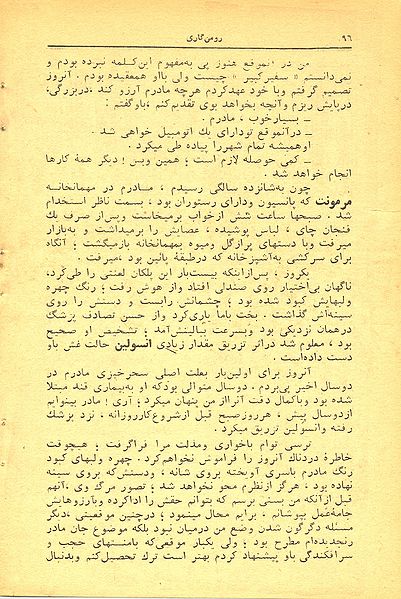 ۹۶ رومن‌گاری
من در آنموقع هنوز پی به‌مفهوم این‌کلمه نبرده بودم و
نمی‌دانستم « سفیر کبیر » چیست ولی بااو همعقیده بودم . آنروز
تصمیم گرفتم وبا خود عهدکردم هرچه مادرم آرزو کند ،دربزرگی،
درپایش ریزم وآنچه بخواهد بوی تقدیم‌کنم ،باوگفتم :
ــ بسیارخوب ، مادرم .
ــ درآنموقع تودارای یك اتومبیل خواهی شد .
اوهمیشه تمام شهررا پیاده طی میکرد .
ــ کمی حوصله لازم است ؛ همین وبس ! دیگر همهٔ کارها
انجام خواهد شد .
چون به‌شانزده سالگی رسیدم ، مــادرم در مهمانخانهٔ
مرمونت که پانسیون ودارای رستوران بود ، بسمت ناظر استخدام
شد . صبحها ساعت شش ازخواب برمیخاست وپس‌از صرف یك
فنجان چای ، لباس پوشیده ، عصایش را برمیداشت و به‌بازار
میرفت وبا دستهای پرازگل ومیوه بمهمانخانه بازمیگشت ؛ آنگاه
برای سرکشی به‌آشپزخانه که درطبقهٔ پائین بود ،میرفت .
یکروز ، پس‌ازاینکه بیست‌بار این پلکان لعنتی را طی‌کرد،
ناگهان بی‌اختیار روی صندلی افتاد واز هوش رفت ؛ رنگ چهره
ولبهایش کبود شده بود ؛ چشمانش رابست و دستش را روی
سینه‌اش گذاشت . بخت باما یاری‌کرد واز حسن تصادف پزشك
درهمان نزدیکی بود وبسرعت ببالینش‌آمد ؛ تشخیص او صحیح
بود ، معلوم شد دراثر تزریق مقدار زیادی انسولین حالت غش باو
دست داده‌است .
آنروز برای اولین‌بار بعلت اصلی سحرخیزی مادرم در
دوسال اخیر پی‌بردم . دوسال متوالی بودکه او به‌بیماری قند مبتلا
شده بود وباکمال دقت آنرااز من پنهان میکرد ؛ آری ! مادر بینوایم
ازدوسال پیش ، هرروزصبح قبل ازشروع‌کارروزانه ، نزد پزشك
رفته وانسولین تزریق میکرد .
ترسی توام باخواری ومذلت مرا فراگرفت ؛ هیچوقت
خاطرهٔ دردناك آنروز را فراموش نخواهم‌کرد. چهره ولبهای کبود
رنگ مادرم باسری آویخته بروی شانه ، ودستش‌که بروی سینه
نهاده بود ، هرگز ازنظرم محو نخواهد شد ؛ تصور مرگ وی ،آنهم
قبل ازآنکه من بسنی برسم که بتوانم حقش را اداکرده وبآرزوهایش
جامهٔ‌عمل بپوشانم ، برایم محال مینمود ؛ درچنین موقعیتی ،دیگر
مسئله دگرگون شدن وضع من درمیان نبود بلکه موضوع جان مادر
رنجدیده‌ام مطرح بود ؛ ولی یکبار موقعی‌که بامنتهای حجب و
سرافکندگی باو پیشنهاد کردم بهتر است ترك تحصیل‌کنم وبدنبال